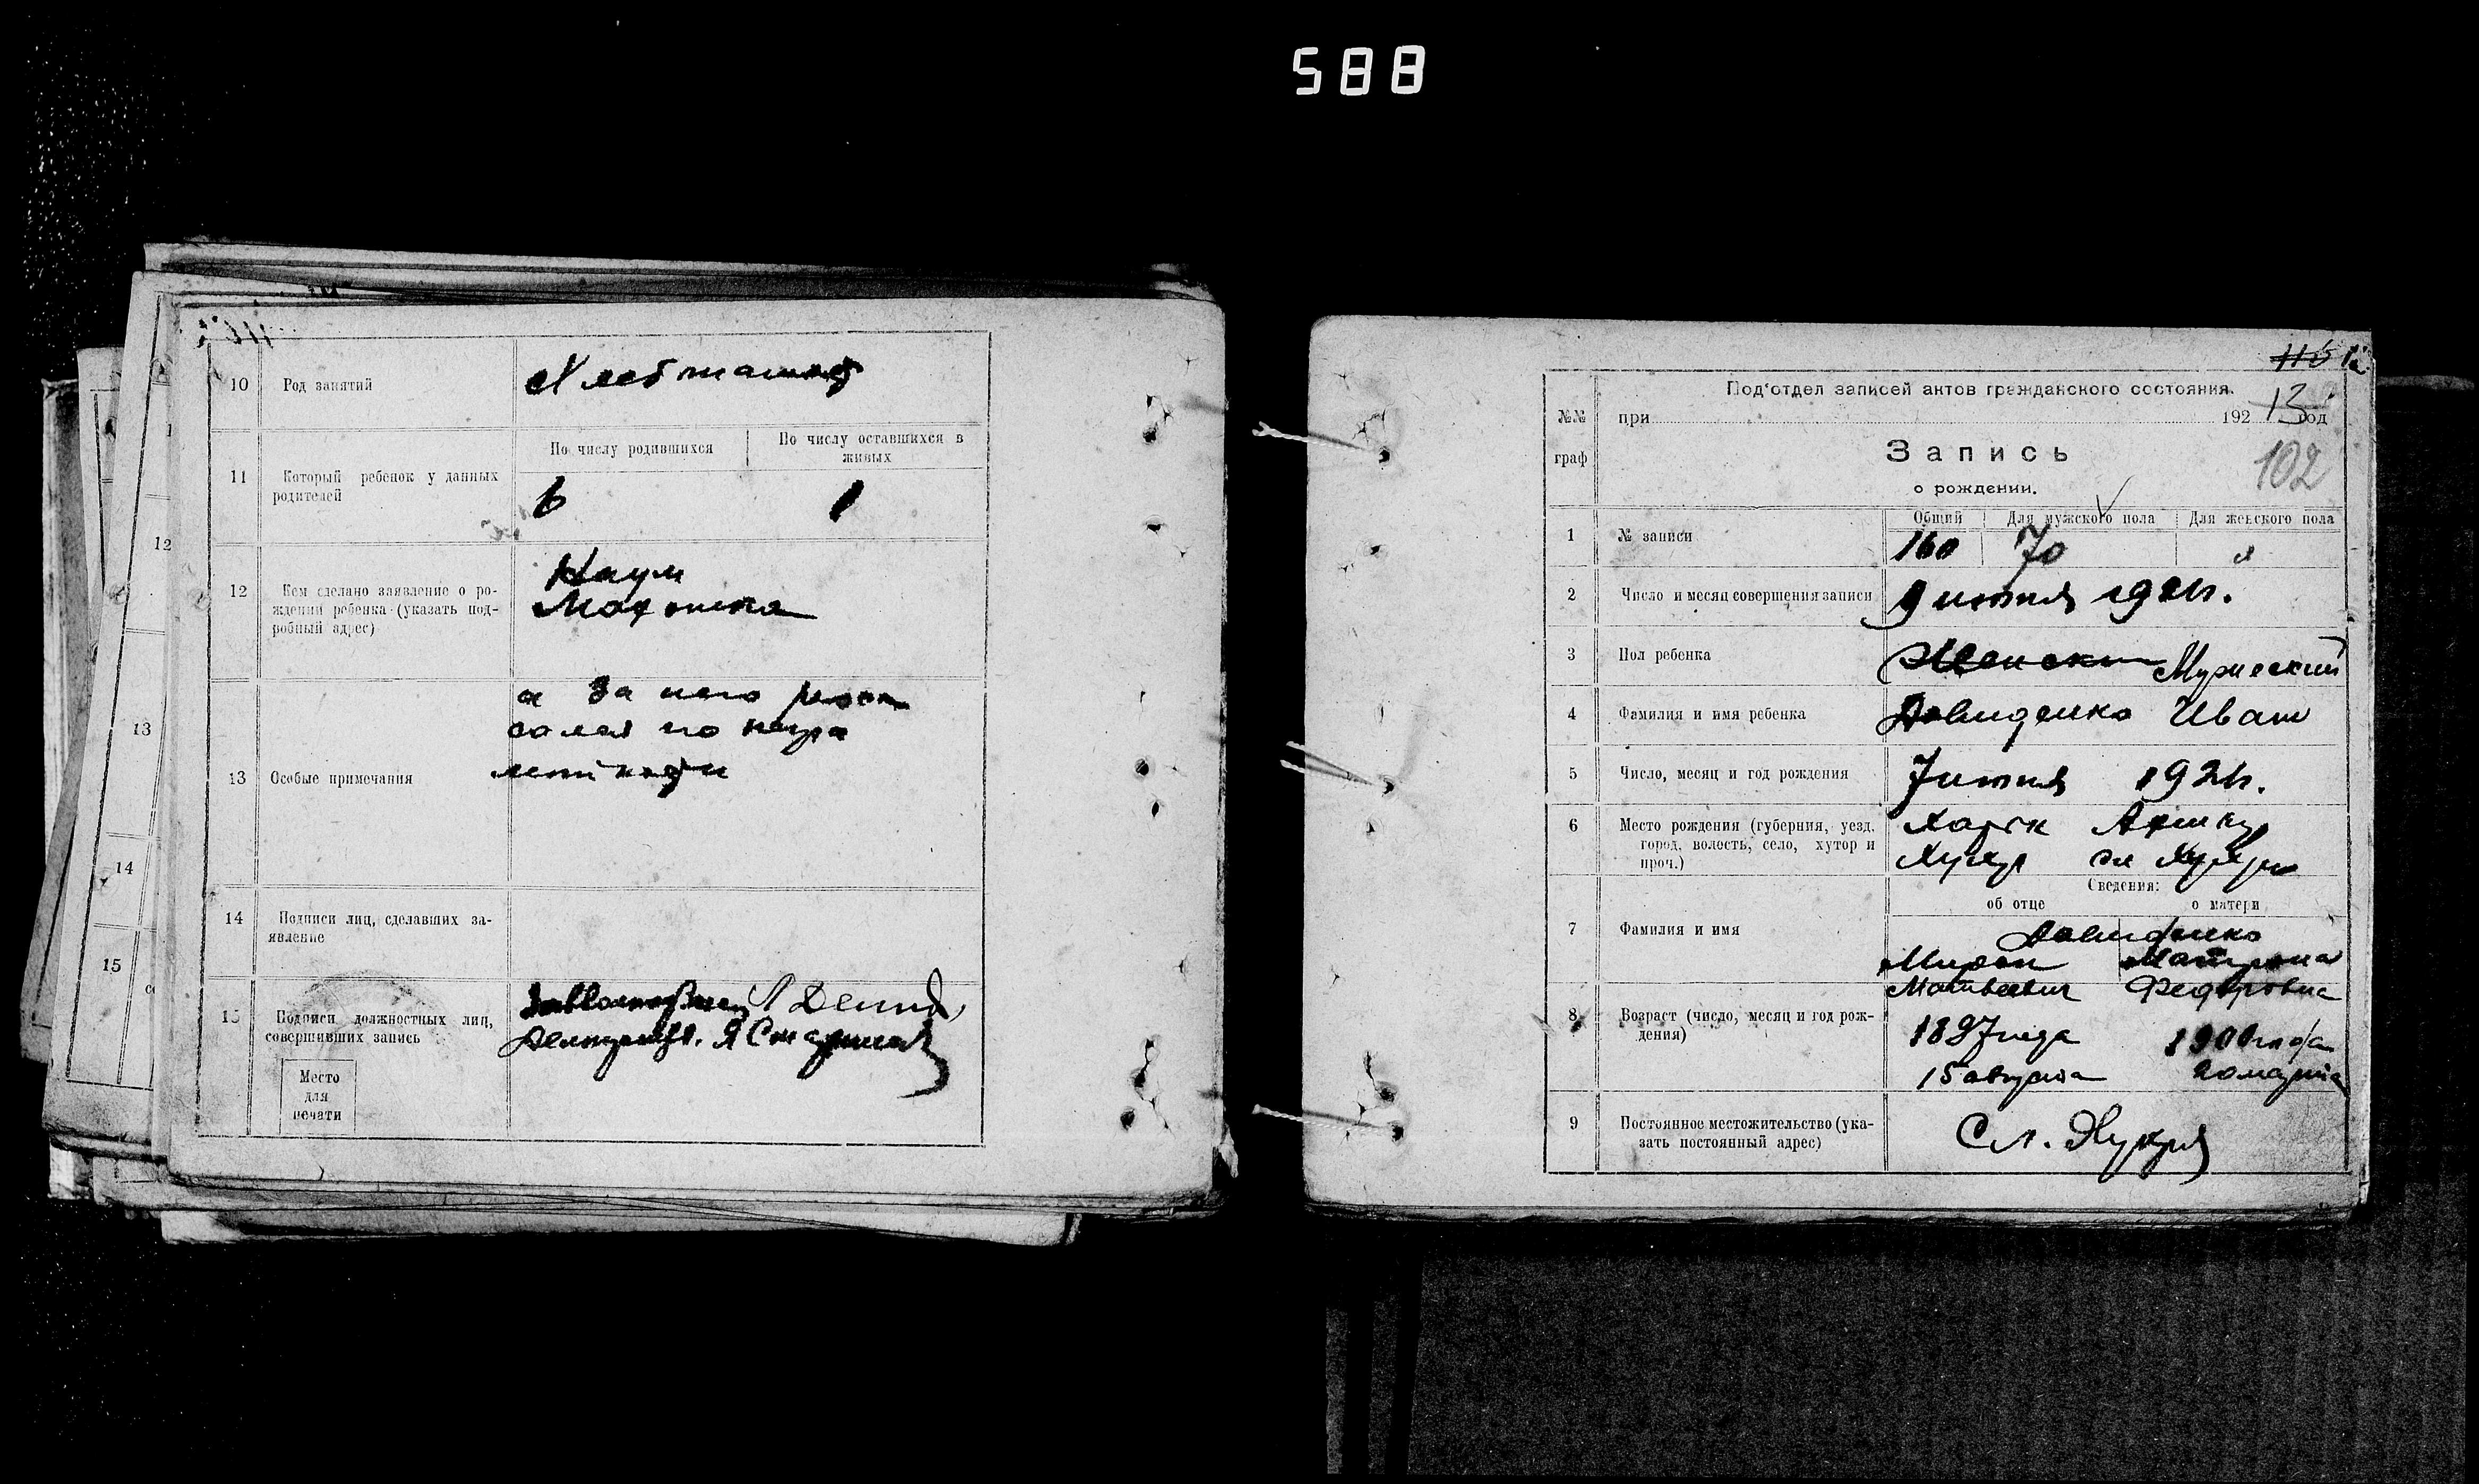 588
10 Род занятий Хлебпашец
11 Который ребенок у данных родителей
По числу родившихся По числу оставшихся в живых
6 1
12 Кем сделано заявление о рождении ребенка (указать подробный адрес)
Наум
Махонка
13 Особые примечания
а за него роспи
сался по негра
мотности
14 Подписи лиц, сделавших заявление
15 Подписи должностных лиц, совершивших запись
Место
для
печати
12
13
14
15
115
Под'отдел записей актов гражданского состояния.
№№ граф
при 192 год
13
Запись
102
о рождении.
Общий Для мужского пола Для женского пола
1 № записи 160 70
2 Число и месяц совершения записи 9 июня 1921г.
3 Пол ребенка Женски Мужеский
4 Фамилия и имя ребенка Давиденко Иван
5 Число, месяц и год рождения 7 июня 1921г.
6 Место рождения (губерния, уезд, город, волость, село, хутор и проч.)
Сведения:
об отце о матери
7 Фамилия и имя
Давиденко
Мирон Матрона
Матвеевич Федоровна
8 Возраст (число, месяц и год рождения)
1897 года 1900 года
15 августа 20 марта
9 Постоянное местожительство (указать постоянный адрес)
Сл.